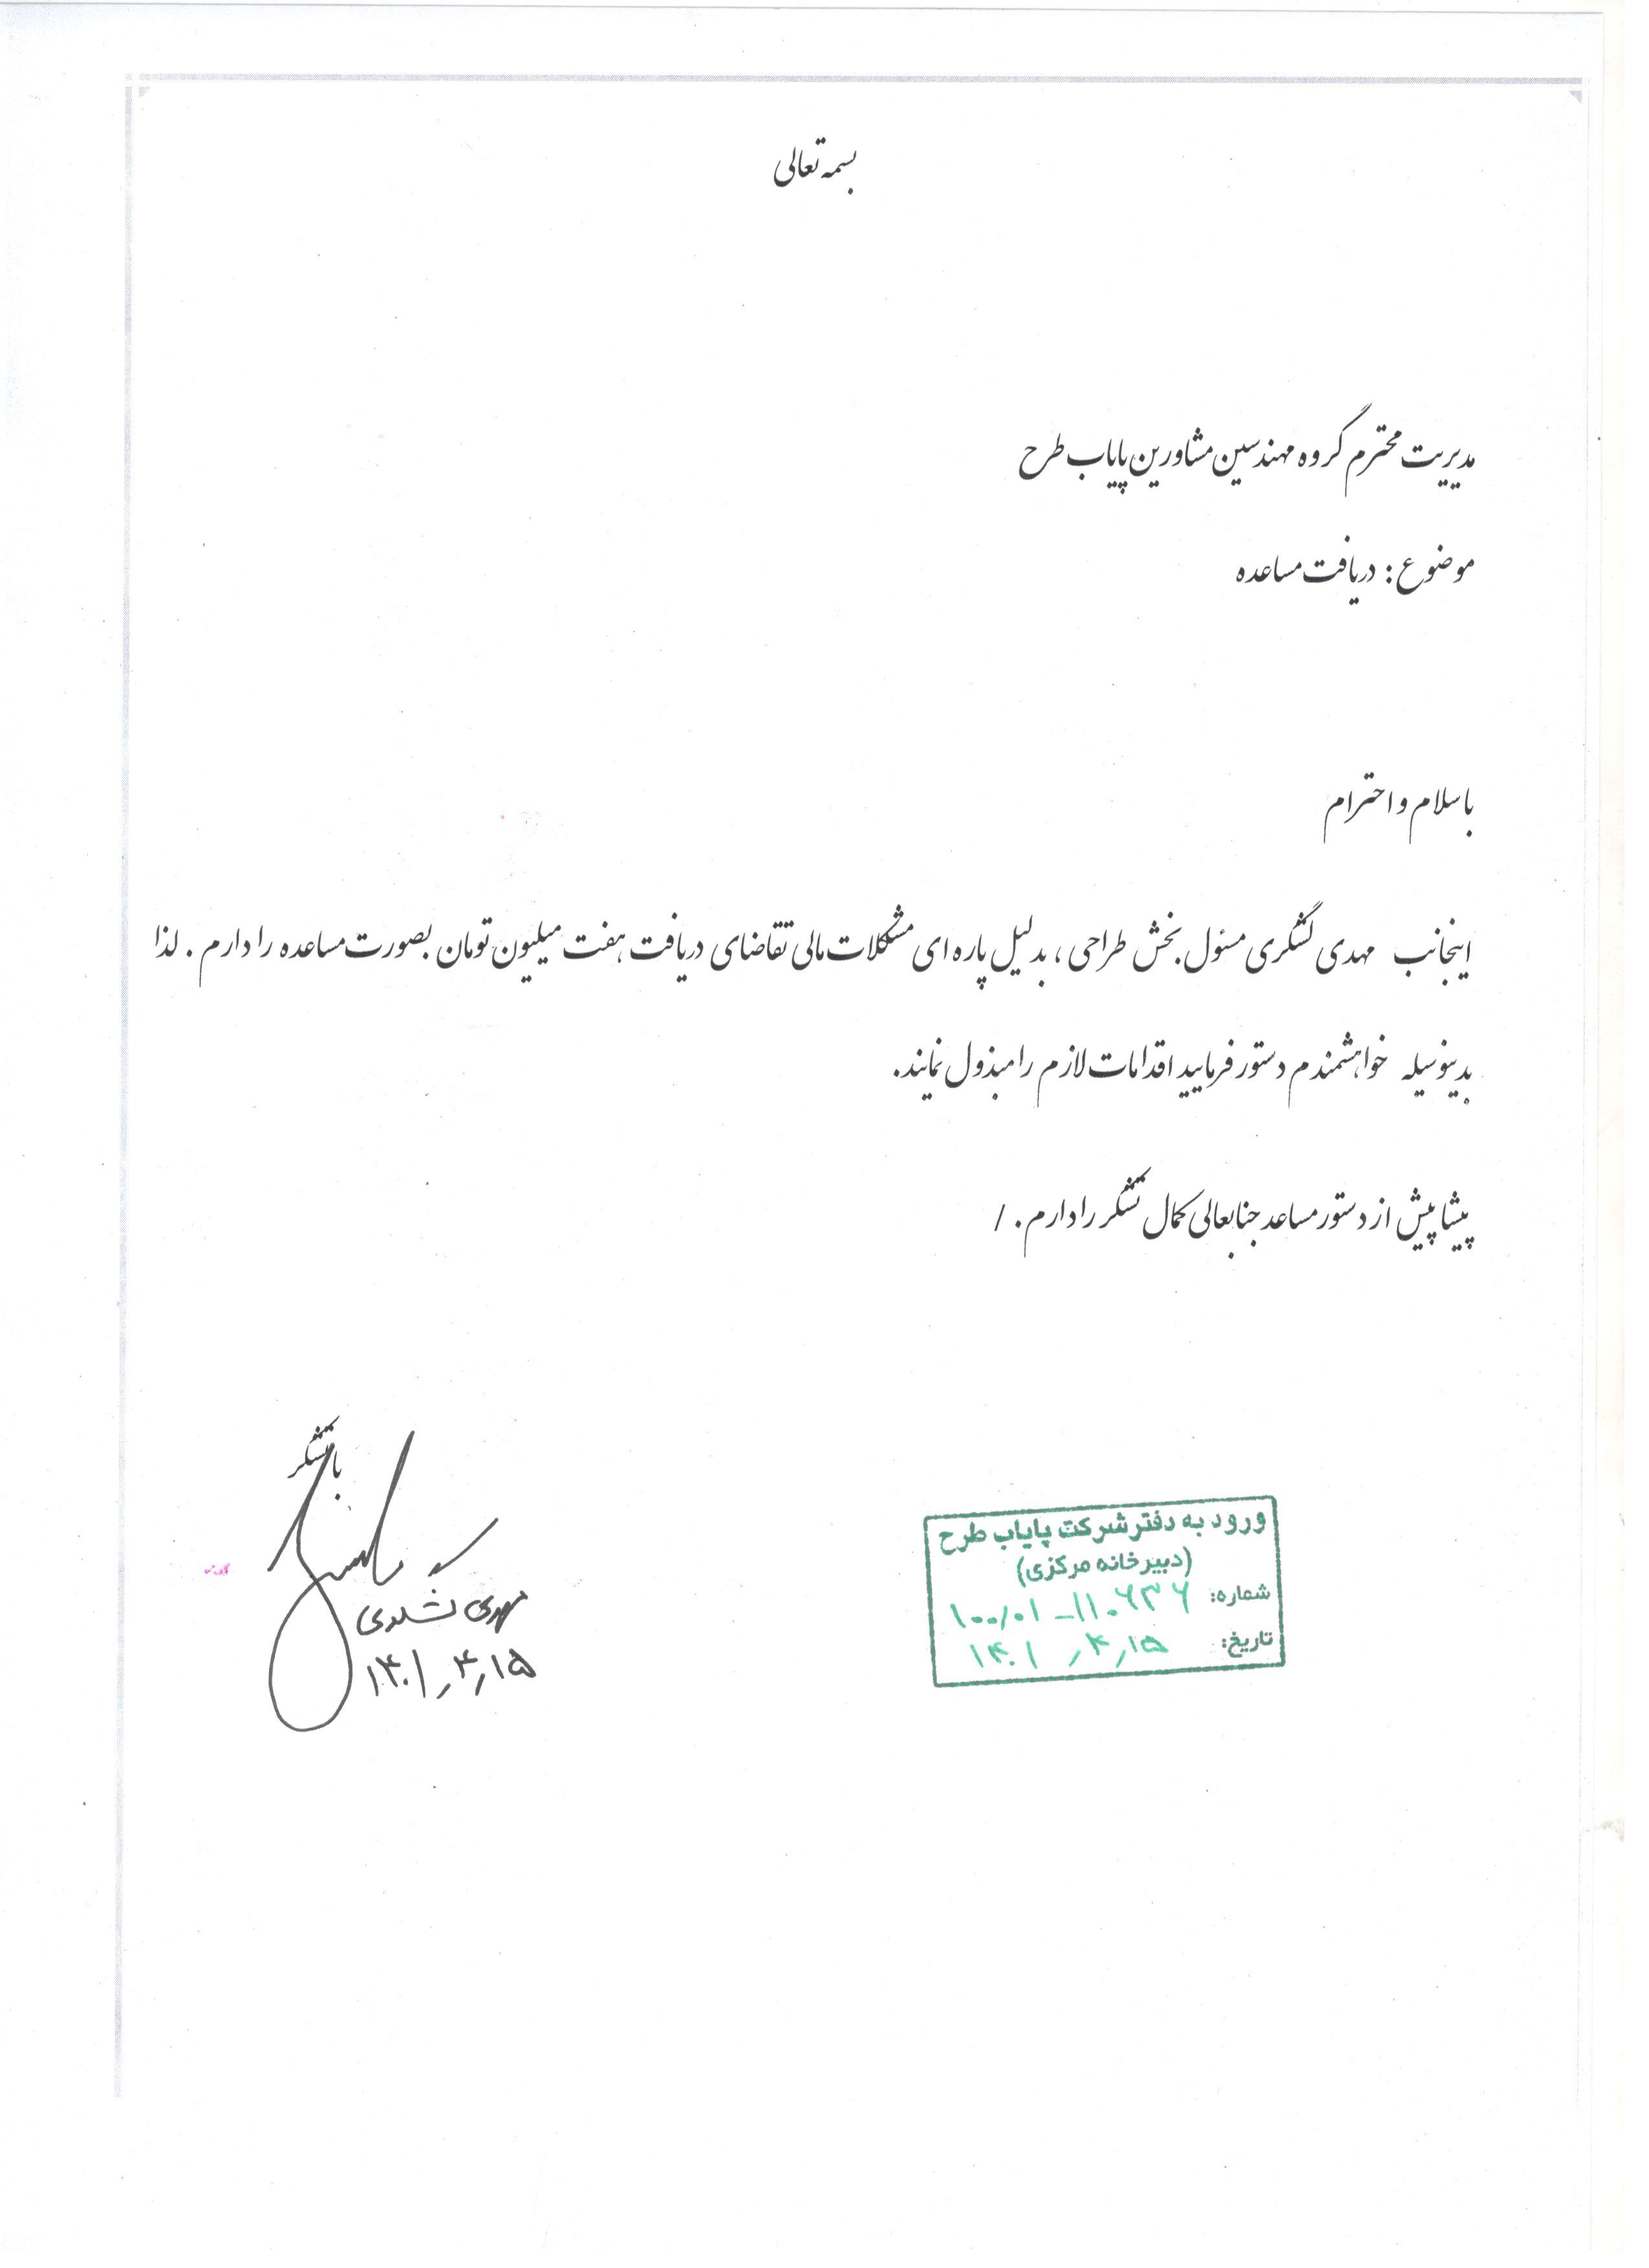 بسمه تعالی
مدیریت محترم گروه مهندسین مشاورین پایاب طرح
موضوع : دریافت مساعده
با سلام و احترام
اینجانب مهدی لشگری مسئول بخش طراحی ، بدلیل پاره ای مشکلات مالی تقاضای دریافت هفت میلیون تومان بصورت مساعده را دارم . لذا
بدینوسیله خواهشمندم دستور فرمایید اقدامات لازم را مبذول نمایند.
پیشاپیش از دستور مساعد جنابعالی کمال تشکر را دارم . /
با تشکر
مهدی لشگری
۱۴۰۱/۴/۱۵
ورود به دفتر شرکت پایاب طرح
(دبیرخانه مرکزی)
شماره: ۱۰۰/۰۱-۱۱۰۶۳۶
تاریخ: ۱۴۰۱/۴/۱۵